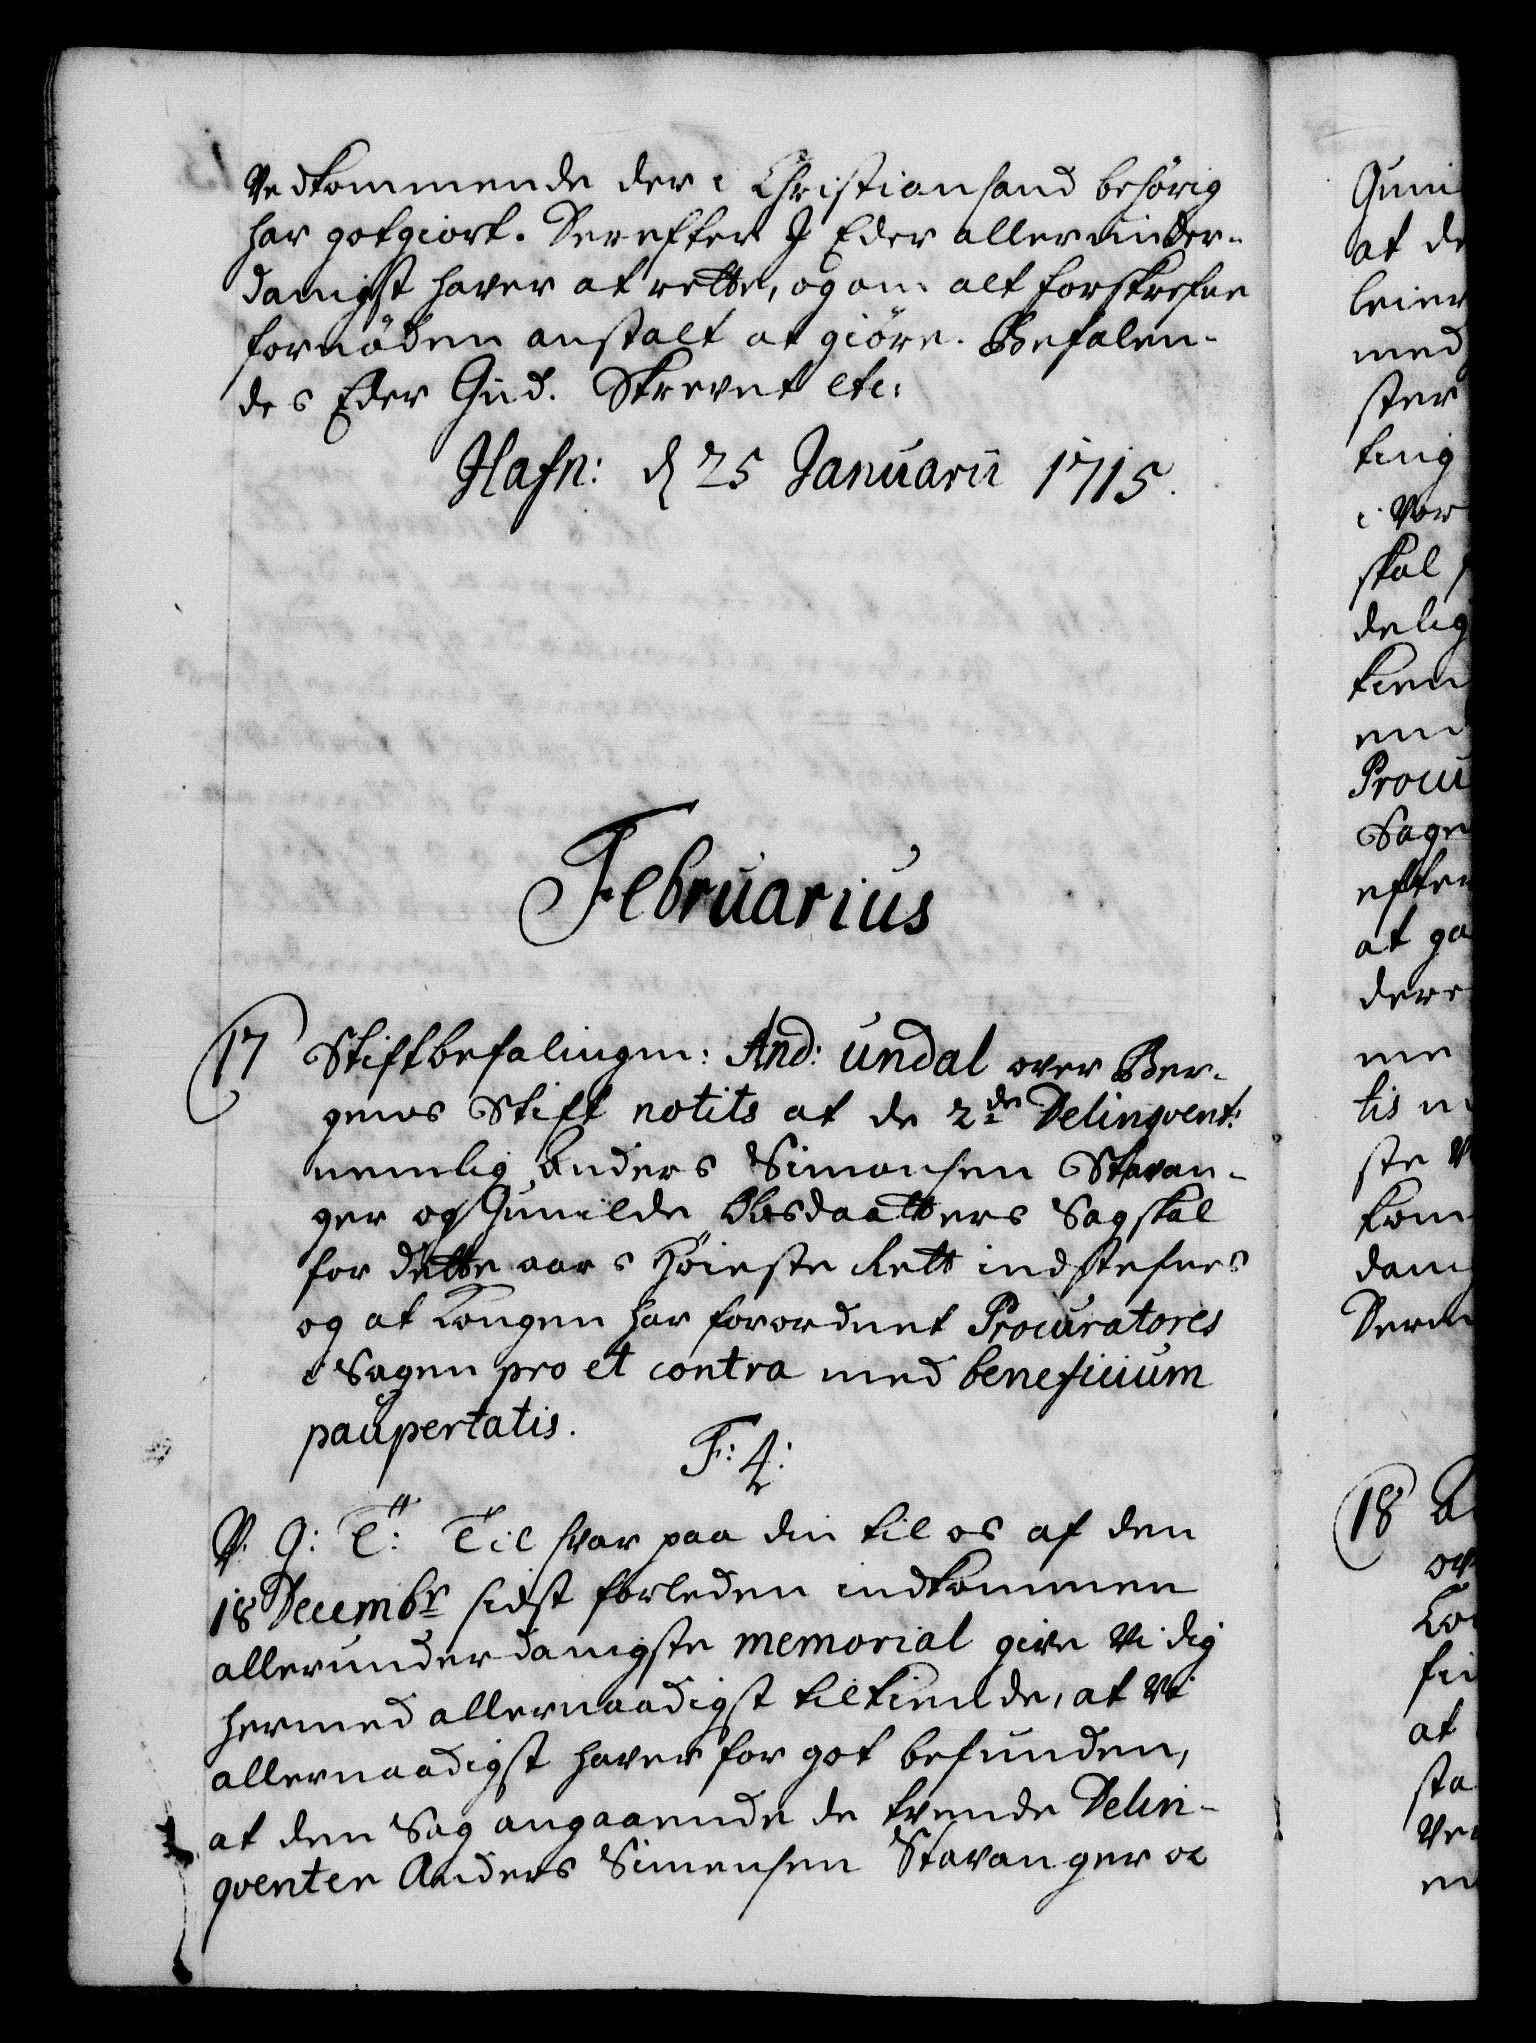 Vedkommende der i Christiansand behörig
har gotgiort. Derefter I Eder allerunder-
danigst haver at rette, og om alt forskrefne
fornöden anstalt at giöre. Befalen-
des Eder Gud. Skrevet etc:
Hafn: d 25 Januarii 1715.
Februarius
17 Stiftbefalingsm: And: Undal over Ber-
gens Stift notits at de 2de Delinqvent:
nemlig Anders Simonsen Stavan-
ger og Gunilde Olesdaatters Sag skal
for dette aars Höieste Rett indstefnes
og at Kongen har forordnet Procuratores
i Sagen pro et contra med beneficium
paupertatis.
F: 4:
V. G: T: Til svar paa din til os af den
18 Decembr sidst forleden indkommen
allerunderdanigste memorial give Vi dig
hermed allernaadigst tilkiende, at Vi
allernaadigst haver for got befunden,
at den Sag angaaende de tvende Delin-
qventer Anders Simensen Stavanger oc
Guni
at de
leier
med
ster
ting
i Vor
skal
delig
kien
Procu
Sage
efter
at ga
dere
me
tis
ste
kom
dan
18
at
sta